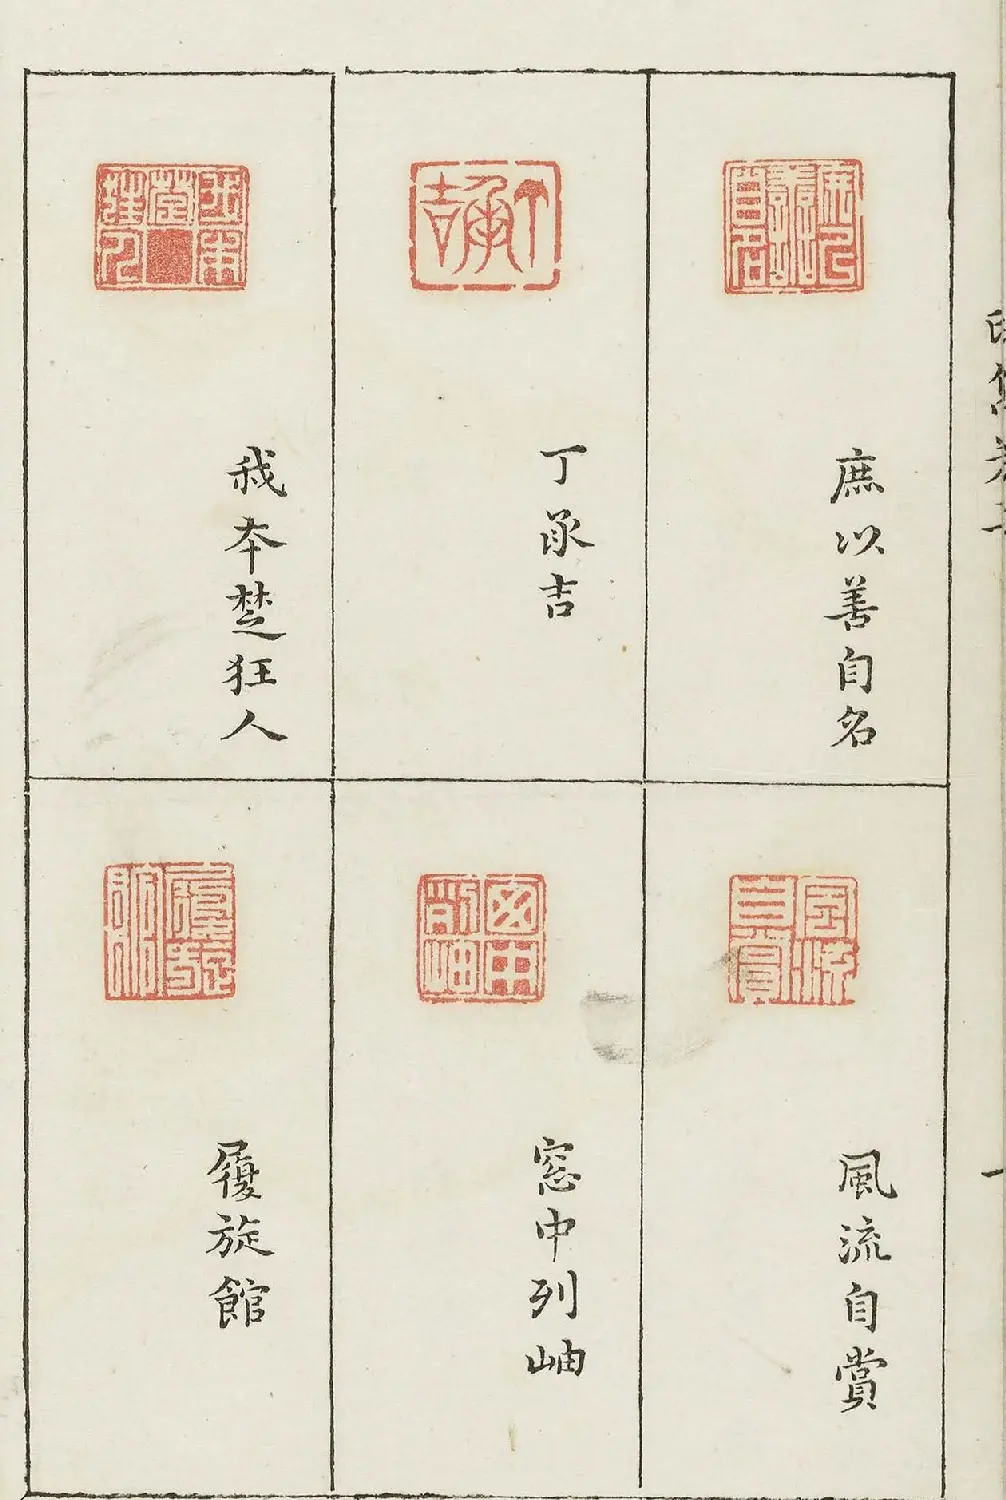 庶以善自名
丁承吉
我本楚狂人
風流自賞
窓中列岫
履旋館